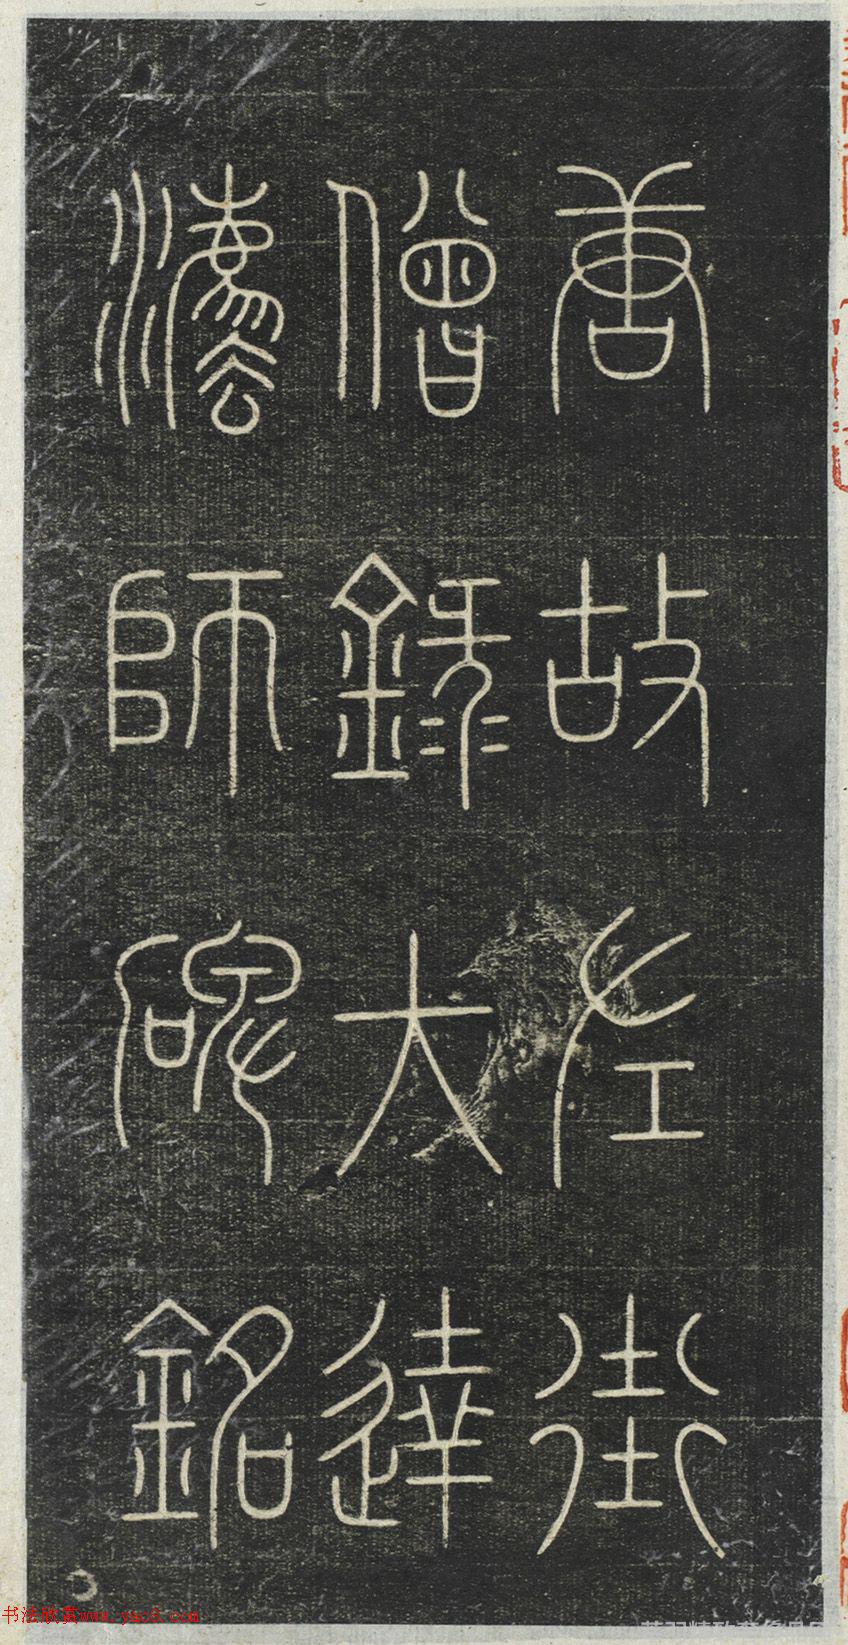 唐故左街
僧錄大達
灋師碑銘
书法欣赏www.yac8.com